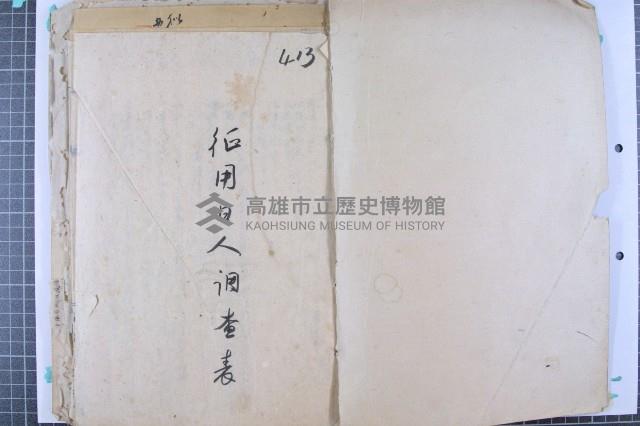 413
征用日人调查表
高雄市立歷史博物館
KAOHSIUNG MUSEUM OF HISTORY